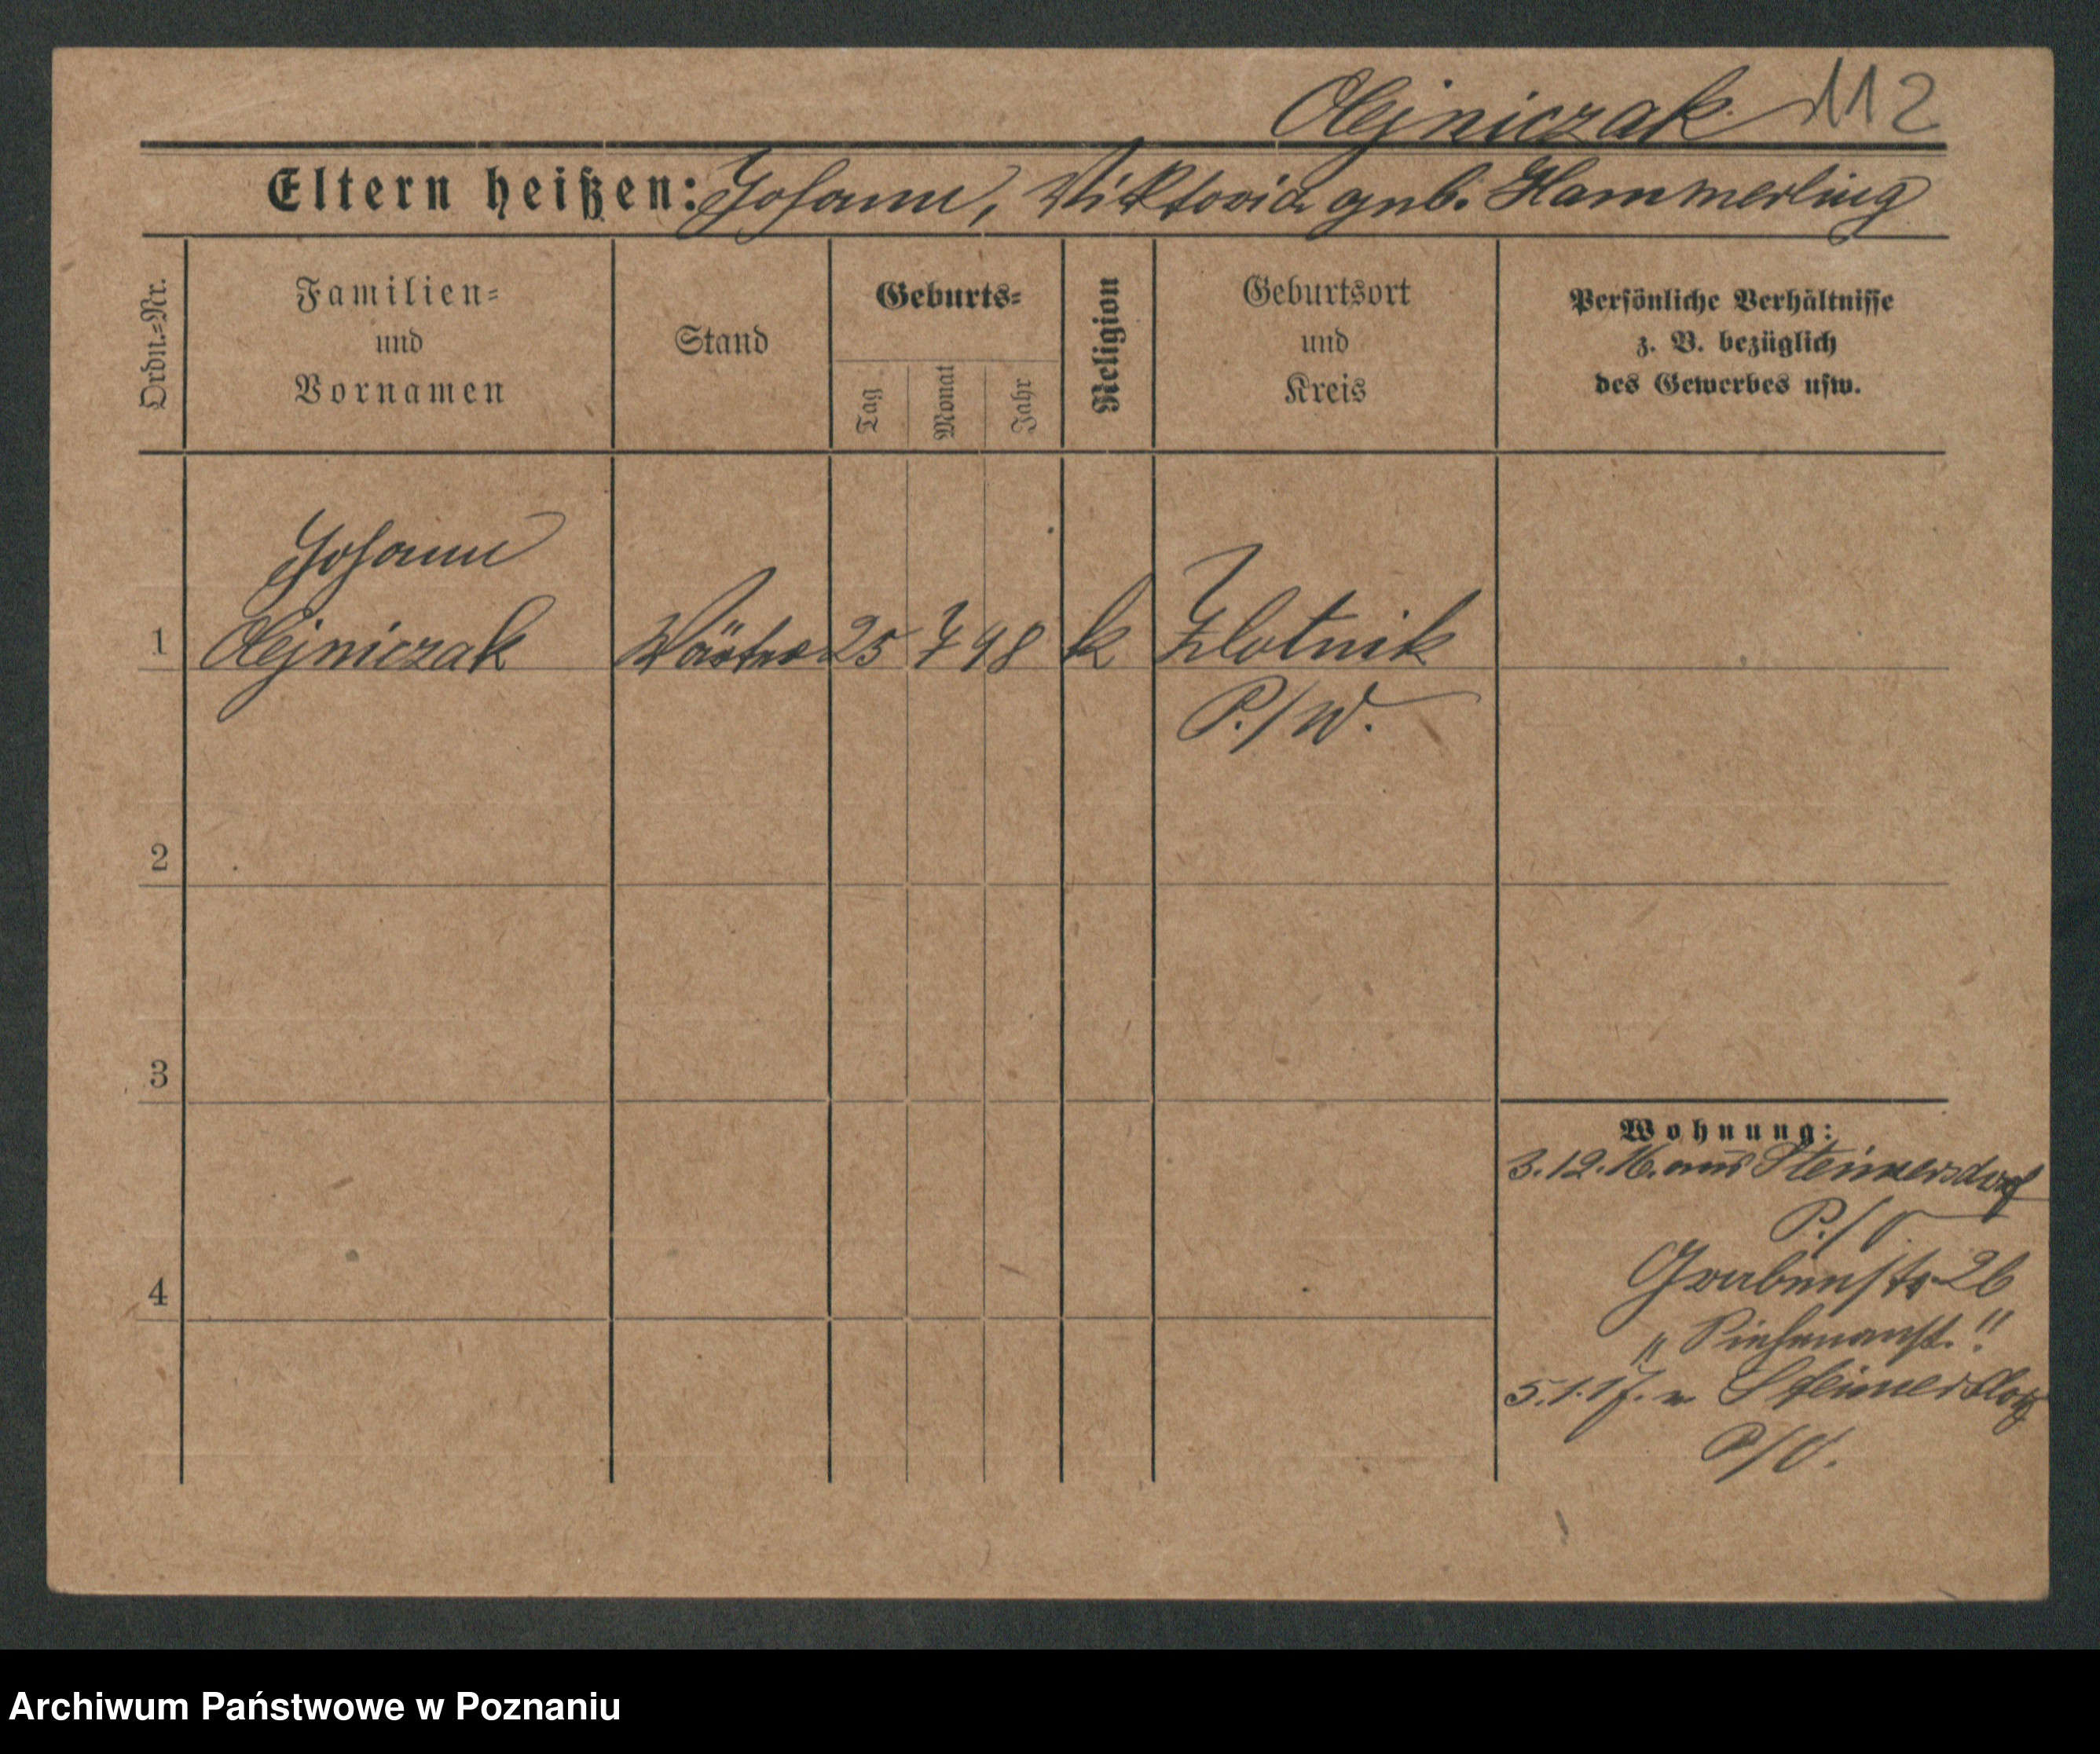 Olejniczak 112
Eltern heißen: Johann, Viktoria geb. Hammerling
Ordn.=Nr.
Familien=
und
Vornamen
Stand
Geburts=
Tag
Monat
Jahr
Religion
Geburtsort
und
Kreis
Persönliche Verhältnisse
z. B. bezüglich
des Gewerbes usw.
Johann
1 Olejniczak Wärter 25 7 98 k Zlotnik
P./W.
2
3
4
Wohnung:
3.12.16. aus Steinersdorf
P./O.
Grabenstr 26
5.1.17. n Steinersdorf
P/O.
Archiwum Państwowe w Poznaniu